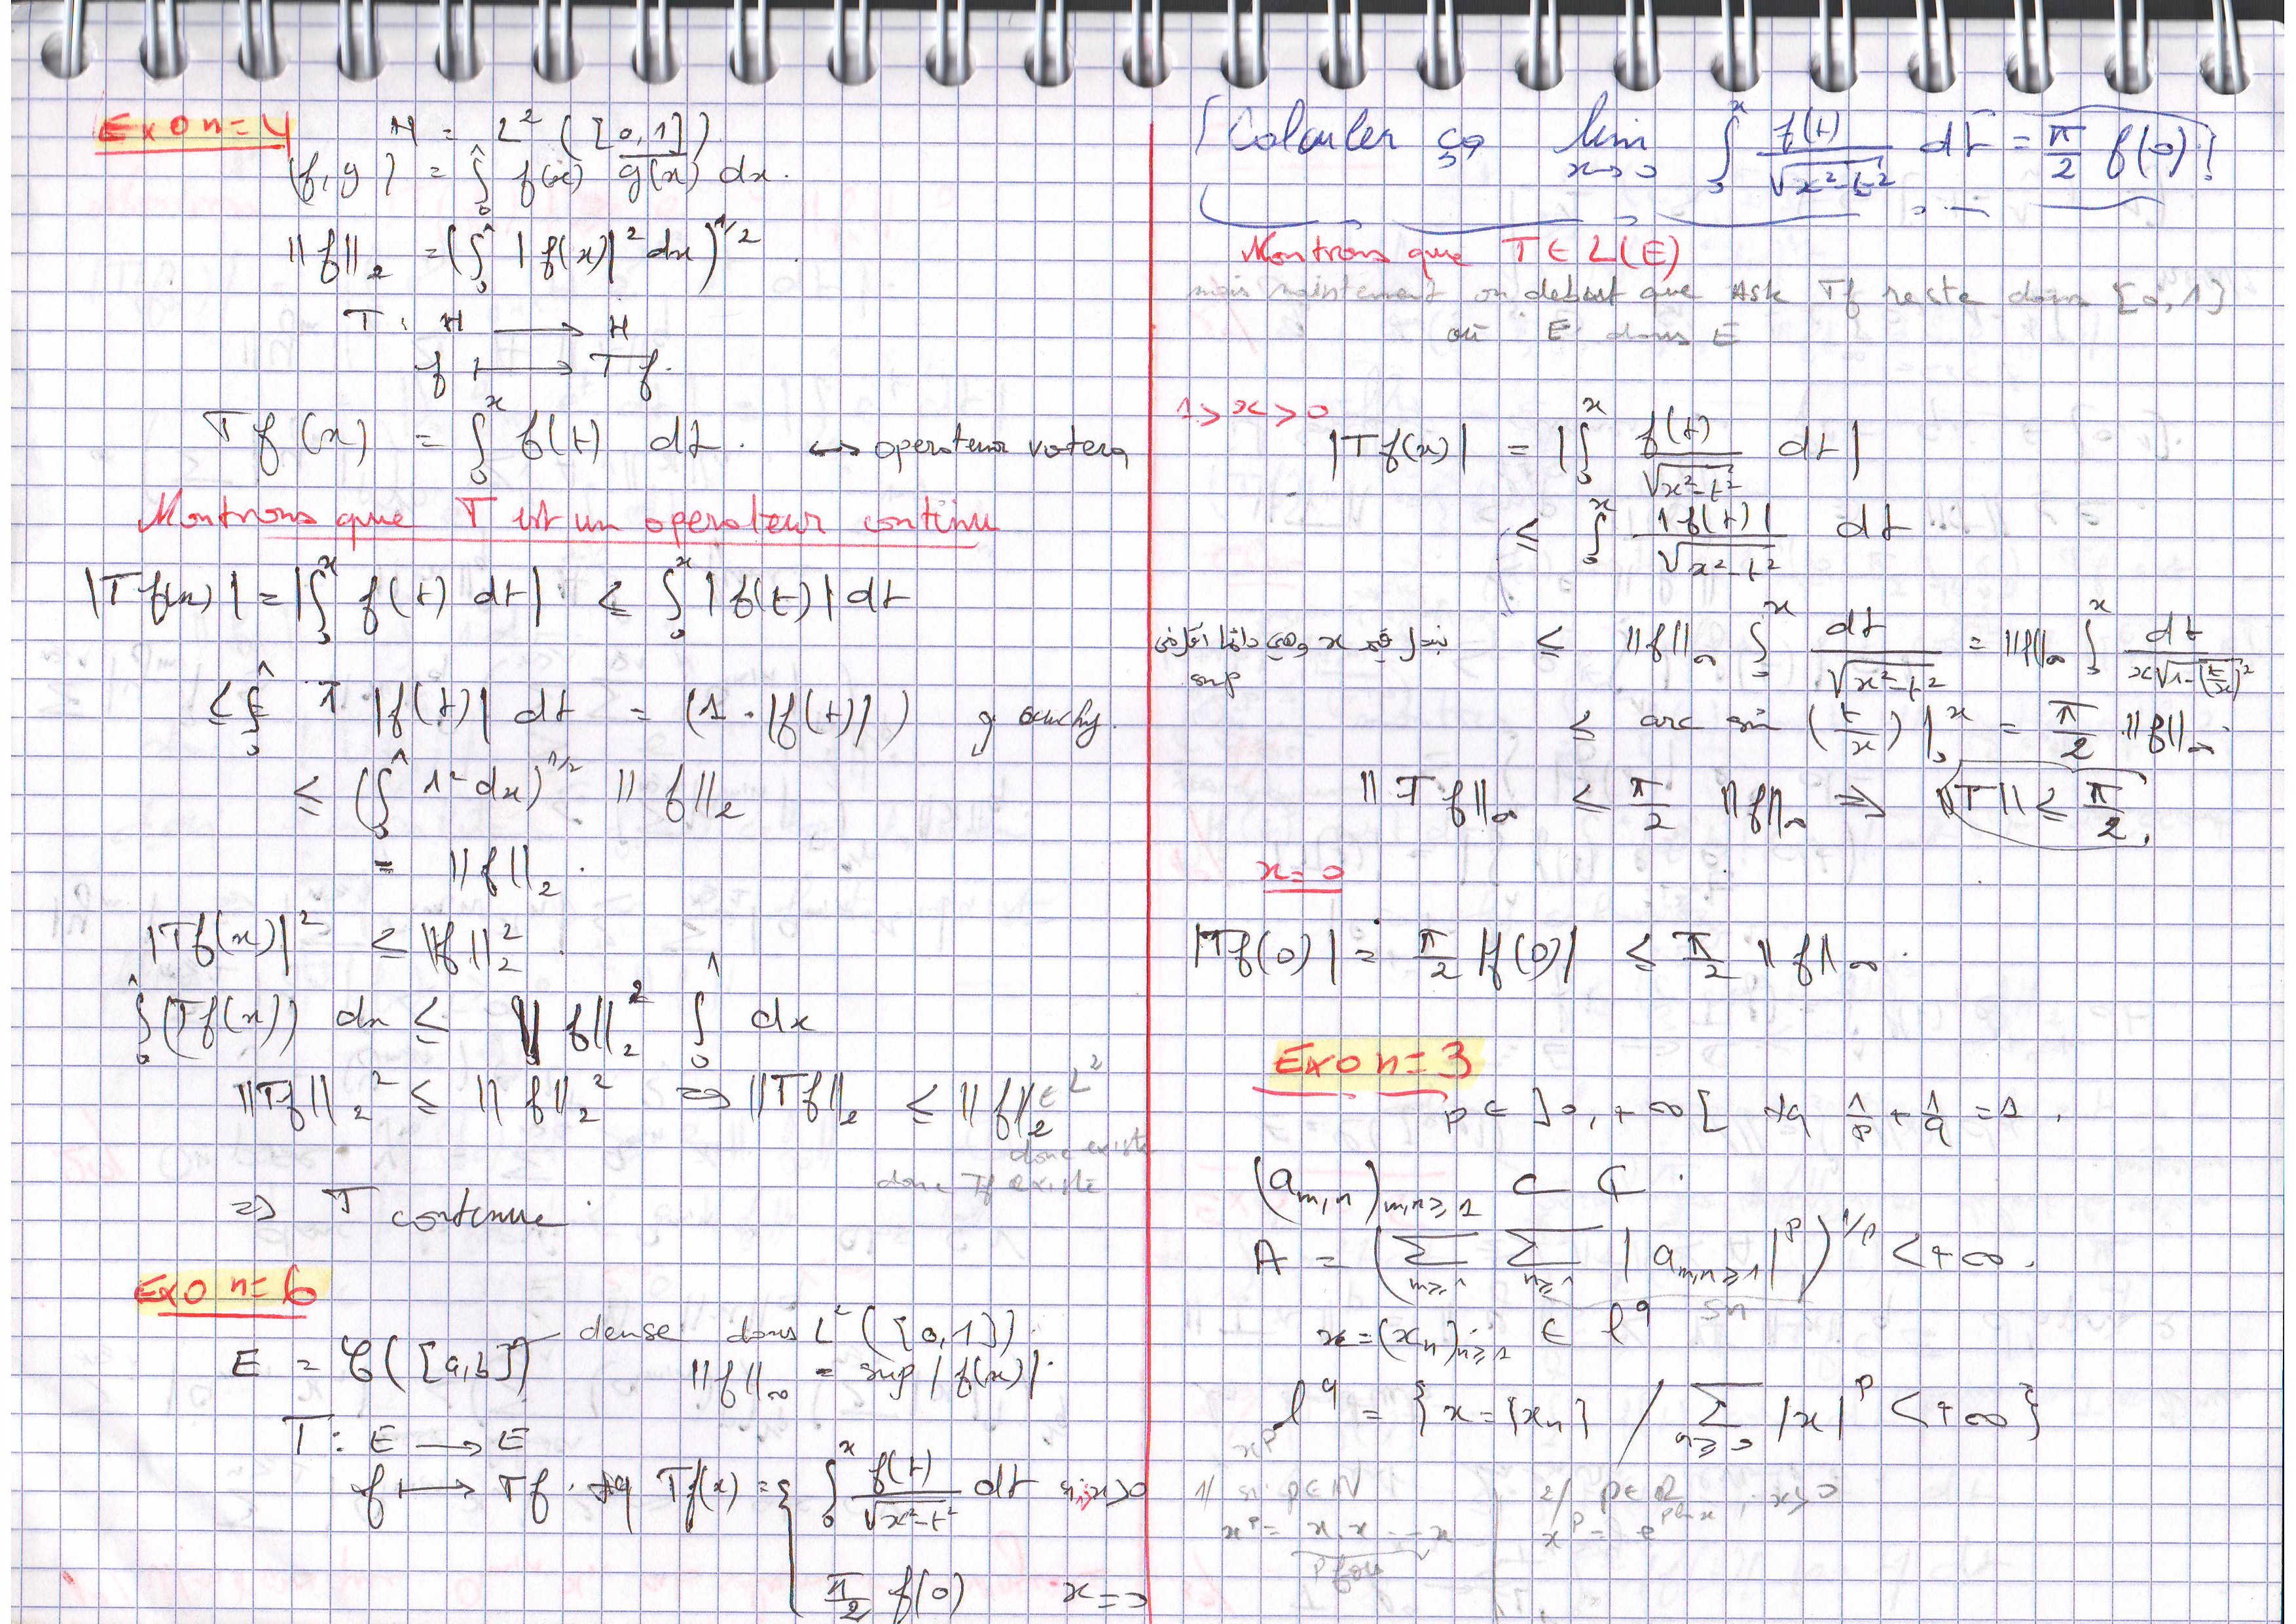 Exo n=4
H = L² ([0,1])
(f,g) = ∫₀¹ f(x) \overline{g(x)} dx.
||f||₂ = (∫₀¹ |f(x)|² dx)^{1/2}
T : H ⟶ H
f ⟼ Tf.
Tf(x) = ∫₀ˣ f(t) dt. ↔ operateur voltera
Montrons que T est un operateur continu
|Tf(x)| = |∫₀ˣ f(t) dt| ≤ ∫₀ˣ |f(t)| dt
≤ ∫₀¹ 1. |f(t)| dt = (1 . |f(t)|)
≤ (∫₀¹ 1² dx)^{1/2} ||f||₂
= ||f||₂.
|Tf(x)|² ≤ ||f||₂².
∫₀¹ (Tf(x)) dx ≤ ||f||₂² ∫₀¹ dx
||Tf||₂² ≤ ||f||₂² ⇒ ||Tf||₂ ≤ ||f||₂ ∈ L²
donc existe
donc Tf existe
⇒ T contenue.
Exo n=6
E = C([a,b]) dense dans L²([0,1]).
||f||∞ = sup |f(x)|.
T : E ⟶ E
f ⟼ Tf. tq Tf(x) = { ∫₀ˣ f(t)/√(x²-t²) dt si x>0
π/2 f(0) x=0
Calculer ça lim_{x→0} ∫₀ˣ f(t)/√(x²-t²) dt = π/2 f(0)!
Montrons que T ∈ L(E)
mais maintenant on debut que Tf reste dans [0,1]
où E dans E
1>x>0
|Tf(x)| = |∫₀ˣ f(t)/√(x²-t²) dt|
≤ ∫₀ˣ |f(t)|/√(x²-t²) dt
≤ ||f||∞ ∫₀ˣ dt/√(x²-t²) = ||f||∞ ∫₀ˣ dt/(x√(1-(t/x)²))
sup
≤ arc sin (t/x) |₀ˣ = π/2 .||f||∞.
||Tf||∞ ≤ π/2 ||f||∞ ⇒ ||T|| ≤ π/2.
x=0
|Tf(0)| = π/2 |f(0)| ≤ π/2 ||f||∞.
Exo n=3
p ∈ ]0,+∞[ tq 1/p + 1/q = 1.
(a_{m,n})_{m,n≥1} ⊂ ℂ.
A = (∑_{m≥1} ∑_{n≥1} |a_{m,n≥1}|^p)^{1/p} < +∞.
Sn
x=(xₙ)_{n≥1} ∈ l^q
l^q = {x={xₙ} / ∑_{n≥0} |x|^p < +∞}
x^p
1/ si p∈ℕ
x^p = x.x.--x
p fois
2/ p∈ℝ, x>0
x^p = e^{p ln x}